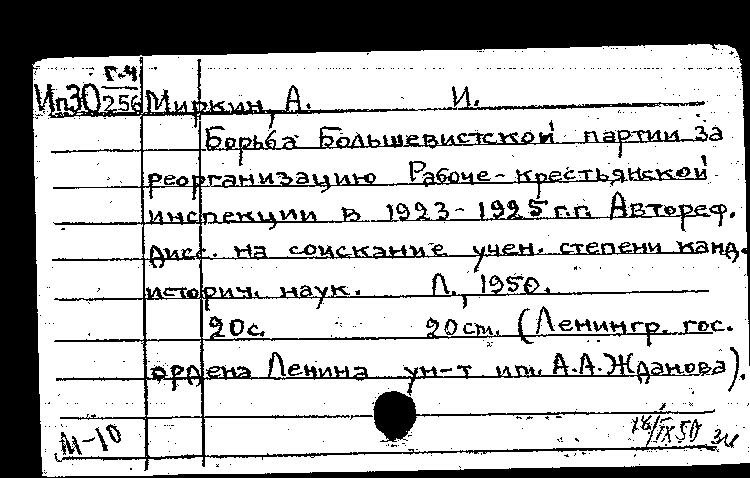 Г.Ч
Ип30 256 Миркин, А. И.
Борьба Большевистской партии за
реорганизацию Рабоче-крестьянской
инспекции в 1923-1925 г.г. Автореф.
дисс. на соискание учен. степени канд.
историч. наук. Л., 1950.
20с. 20см. (Ленингр. гос.
ордена Ленина ун-т им. А.А.Жданова).
М-10 18/IX 50